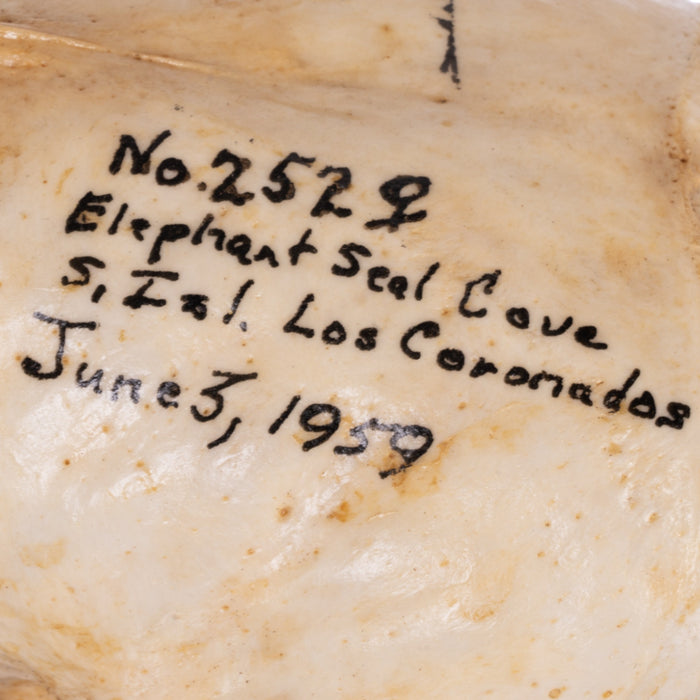 No. 252 ♀
Elephant Seal Cove
S. Isl. Los Coronados
June 3, 1959